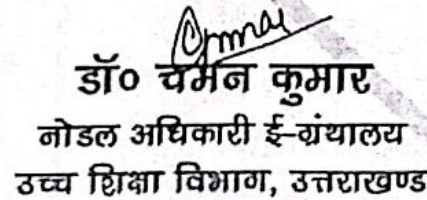 डॉ० चमन कुमार
नोडल अधिकारी ई-ग्रंथालय
उच्च शिक्षा विभाग, उत्तराखण्ड